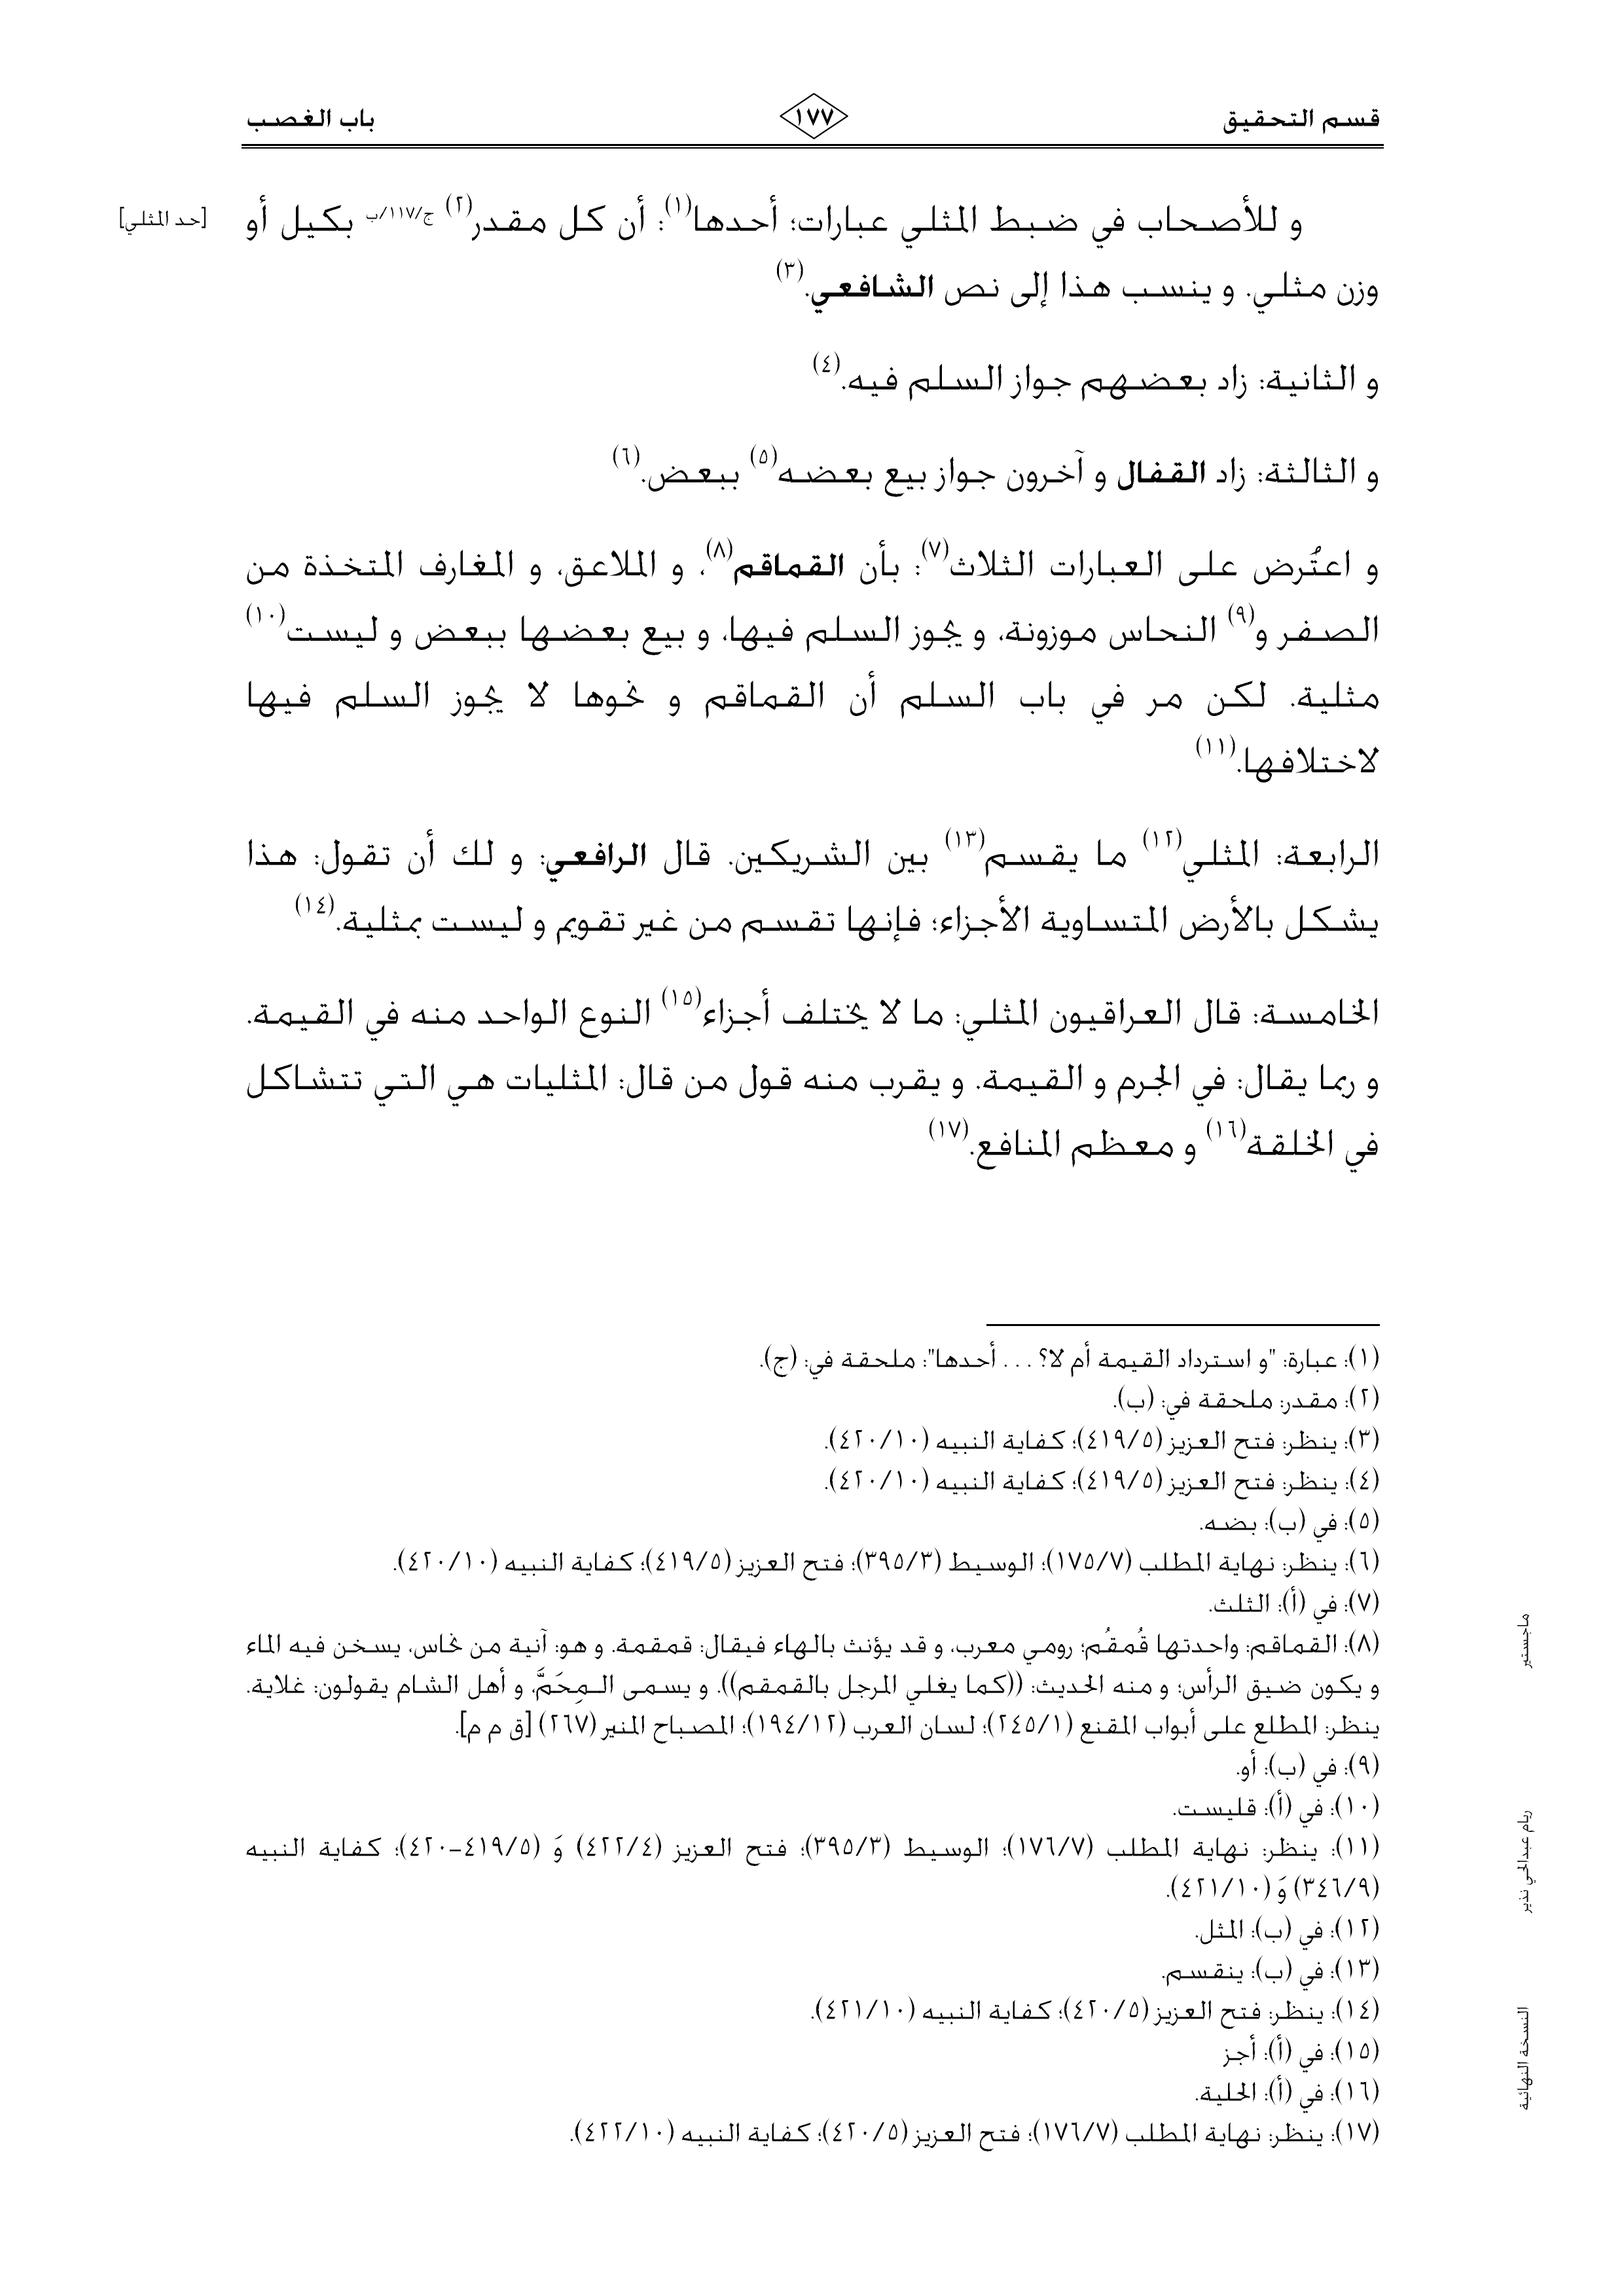 قسم التحقيق
١٧٧
باب الغصب
و للأصحاب في ضبط المثلي عبارات؛ أحدها(١): أن كل مقدر(٢) ج/١١٧/ب بكيل أو
[حد المثلي]
وزن مثلي. و ينسب هذا إلى نص الشافعي.(٣)
و الثانية: زاد بعضهم جواز السلم فيه.(٤)
و الثالثة: زاد القفال و آخرون جواز بيع بعضه(٥) ببعض.(٦)
و اعتُرض على العبارات الثلاث(٧): بأن القماقم(٨)، و الملاعق، و المغارف المتخذة من
الصفر و(٩) النحاس موزونة، و يجوز السلم فيها، و بيع بعضها ببعض و ليست(١٠)
مثلية. لكن مر في باب السلم أن القماقم و نحوها لا يجوز السلم فيها
لاختلافها.(١١)
الرابعة: المثلي(١٢) ما يقسم(١٣) بين الشريكين. قال الرافعي: و لك أن تقول: هذا
يشكل بالأرض المتساوية الأجزاء؛ فإنها تقسم من غير تقويم و ليست بمثلية.(١٤)
الخامسة: قال العراقيون المثلي: ما لا يختلف أجزاء(١٥) النوع الواحد منه في القيمة.
و ربما يقال: في الجرم و القيمة. و يقرب منه قول من قال: المثليات هي التي تتشاكل
في الخلقة(١٦) و معظم المنافع.(١٧)
(١): عبارة: "و استرداد القيمة أم لا؟ . . . أحدها": ملحقة في: (ج).
(٢): مقدر: ملحقة في: (ب).
(٣): ينظر: فتح العزيز (٤١٩/٥)؛ كفاية النبيه (٤٢٠/١٠).
(٤): ينظر: فتح العزيز (٤١٩/٥)؛ كفاية النبيه (٤٢٠/١٠).
(٥): في (ب): بضه.
(٦): ينظر: نهاية المطلب (١٧٥/٧)؛ الوسيط (٣٩٥/٣)؛ فتح العزيز (٤١٩/٥)؛ كفاية النبيه (٤٢٠/١٠).
(٧): في (أ): الثلث.
(٨): القماقم: واحدتها قُمقُم؛ رومي معرب، و قد يؤنث بالهاء فيقال: قمقمة. و هو: آنية من نحاس، يسخن فيه الماء
و يكون ضيق الرأس؛ و منه الحديث: ((كما يغلي المرجل بالقمقم)). و يسمى الـمِحَمَّ، و أهل الشام يقولون: غلاية.
ينظر: المطلع على أبواب المقنع (٢٤٥/١)؛ لسان العرب (١٩٤/١٢)؛ المصباح المنير (٢٦٧) [ق م م].
(٩): في (ب): أو.
(١٠): في (أ): قليست.
(١١): ينظر: نهاية المطلب (١٧٦/٧)؛ الوسيط (٣٩٥/٣)؛ فتح العزيز (٤٢٢/٤) وَ (٤١٩/٥-٤٢٠)؛ كفاية النبيه
(٣٤٦/٩) وَ (٤٢١/١٠).
(١٢): في (ب): المثل.
(١٣): في (ب): ينقسم.
(١٤): ينظر: فتح العزيز (٤٢٠/٥)؛ كفاية النبيه (٤٢١/١٠).
(١٥): في (أ): أجز
(١٦): في (أ): الحلية.
(١٧): ينظر: نهاية المطلب (١٧٦/٧)؛ فتح العزيز (٤٢٠/٥)؛ كفاية النبيه (٤٢٢/١٠).
ماجستير
ريام عبدالحي نذير
النسخة النهائية